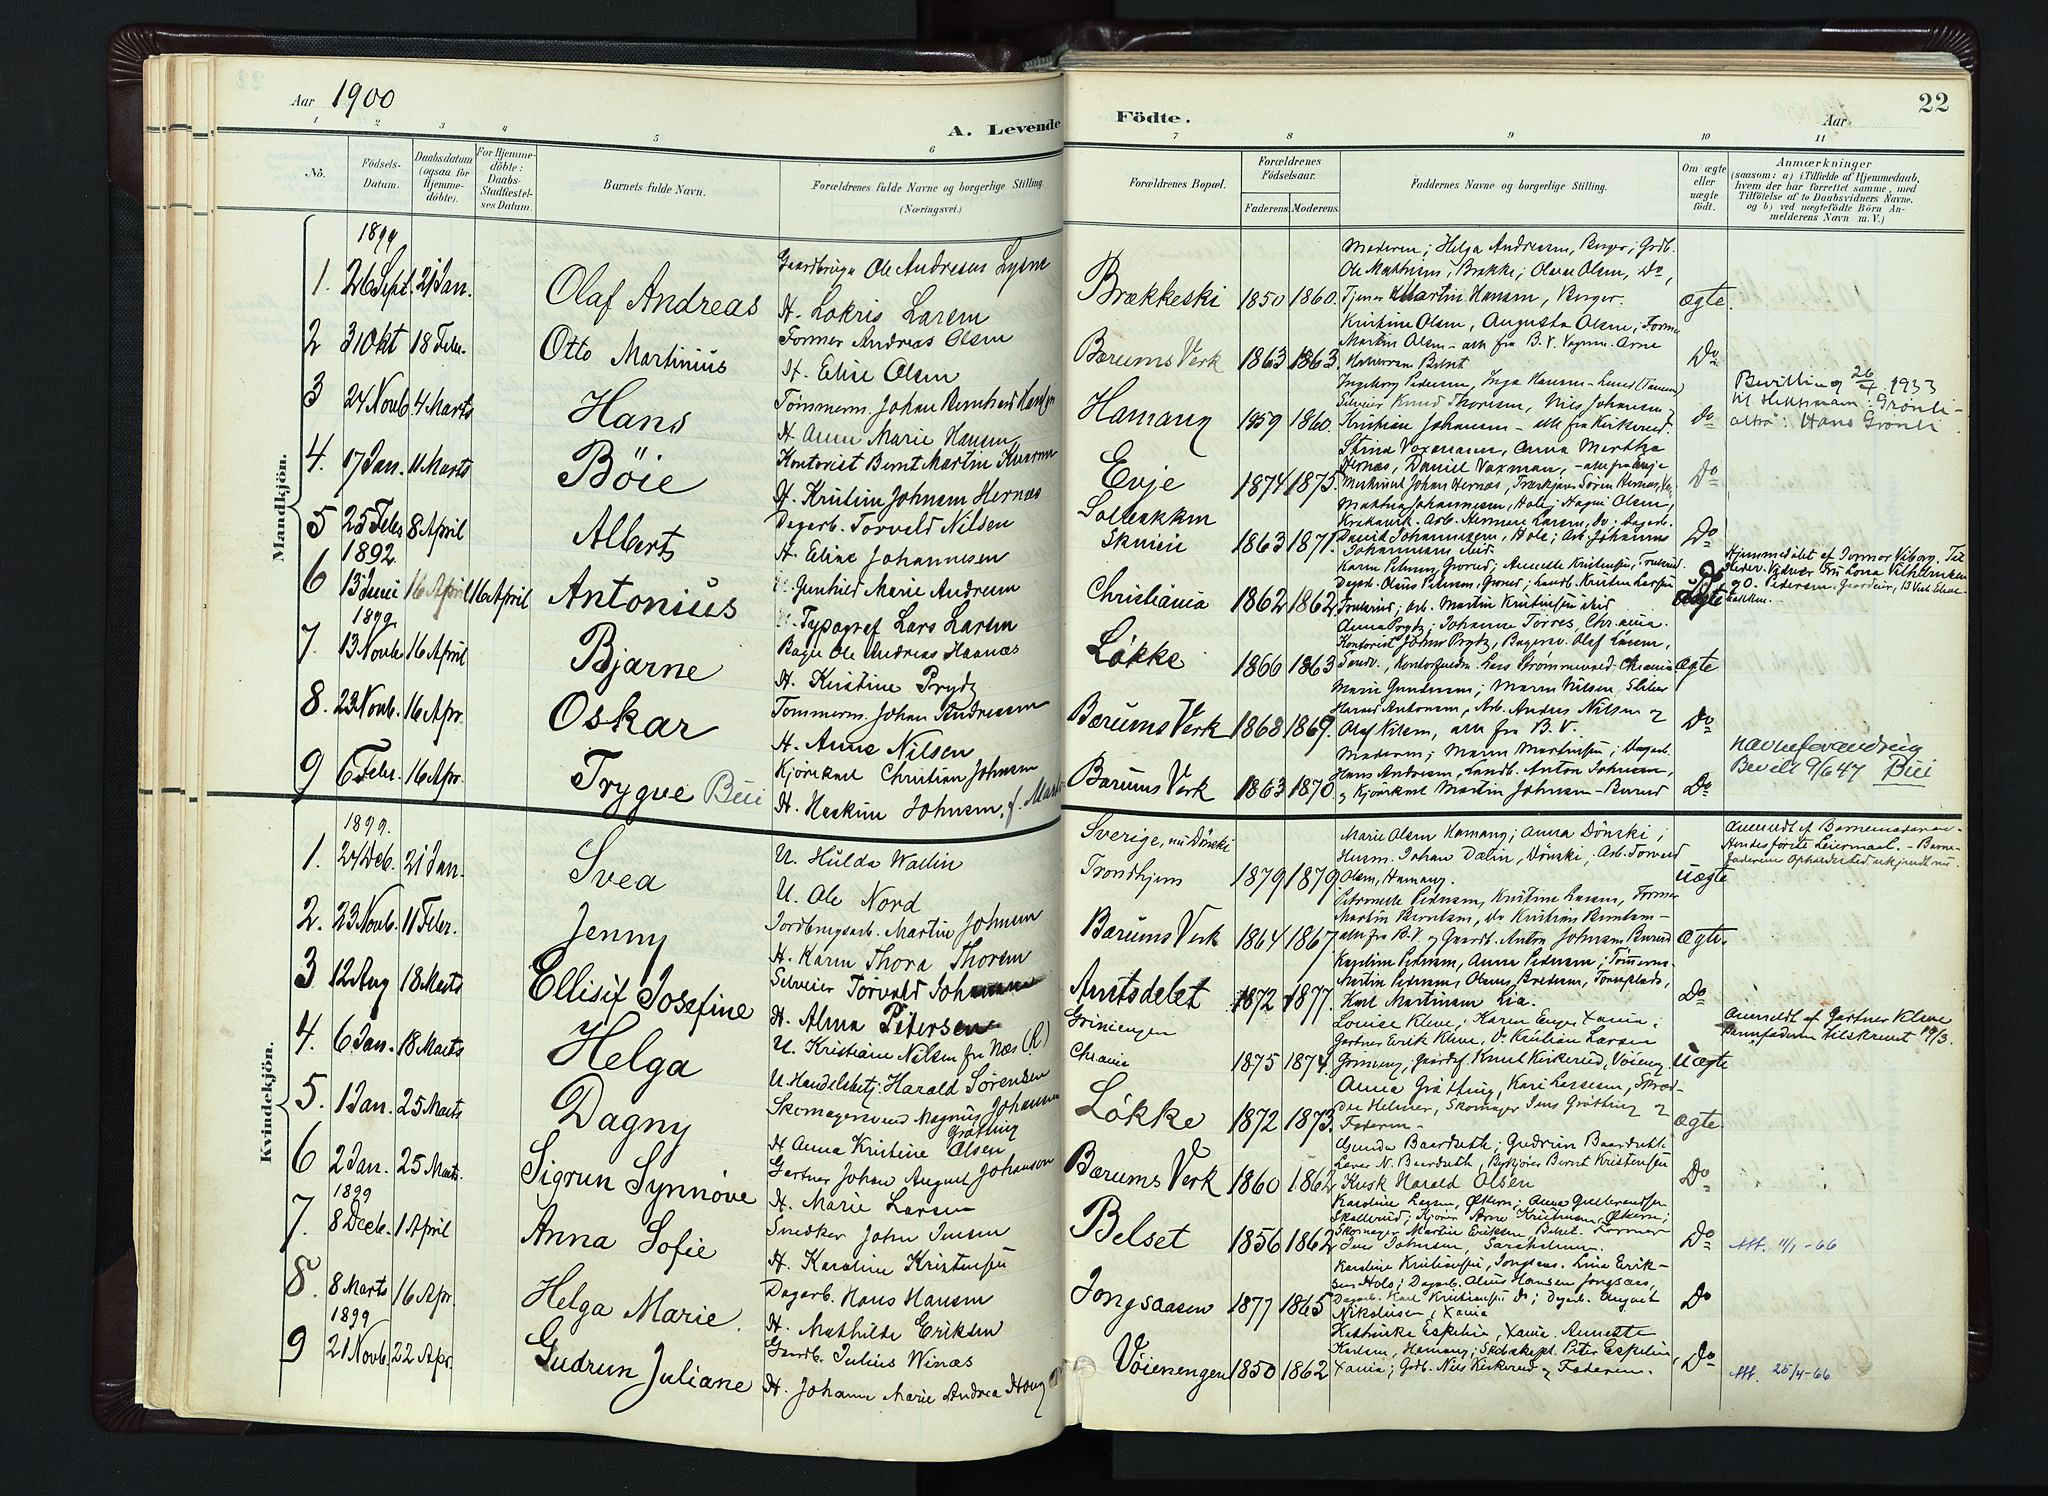 Aar 1900
A. Levende Födte.
Aar
22
1 2 3 4 5 6 7 8 9 10 11
No.
Födsels-Datum.
Daabsdatum (ogsaa for Hjemme-döbte).
For Hjemme-döbte: Daabs-Stadfæstel-ses Datum.
Barnets fulde Navn.
Forældrenes fulde Navne og borgerlige Stilling.
(Næringsvei.)
Forældrenes Bopæl.
Forældrenes Födselsaar.
Faderens. Moderens.
Faddernes Navne og borgerlige Stilling.
Om ægte eller uægte födt.
Anmærkninger
(saasom: a) i Tilfælde af Hjemmedaab, hvem der har forrettet samme, med Tilföielse af to Daabsvidners Navne. og b) ved uægtefödte Börn An-melderens Navn m. V.)
Mandkjön.
1899
1. 26 Sept. 21 Jan. Olaf Andreas
Ole Andresen
H. Lokris Larsen
Brækkeski 1850 1860
Moderen; Helga Andresen, Berger; Grdb.
Ole Mathisen, Brække; Olava Olsen, Do,
Tjener Martin Hansen, Berger.
ægte
2 31 Okt 18 Febr. Otto Martinius
Former Andreas Olsen
H. Eline Olsen
Bærums Verk 1863 1863
Kristine Olsen, Augusta Olsen, Former
Martin Olsen - alle fra B. V. Vognm. Arne
Belset
Do
3 24 Novb 4 Marts Hans
Tømmerm. Johan Bernhard Hansen
H. Anne Marie Hansen
Hamang 1859 1860
Ingeborg Pedersen, Inga Hansen - Lund (Tanum)
Knud Thoresen, Nils Johansen
Kristian Johansen - alle fra Kirkerud.
Do
Bevilling 26/4 1933
til Grønli
altså: Hans Grønli
4. 17 Jan. 11 Marts Böie
Kontorist Bernt Martin
H. Kristine Johnsen Hernæs
Evje 1874 1875
Stina Vaxman, Anna Martha
Hernæs, Daniel Vaxman, - alle fra Evje
Johan Hernæs,
Do
5 25 Febr 8 April Alberts
Dagarb. Torvald Nilsen
H. Eline Johannesen
Skuien 1863 1871
Johannesen, Hole; Olsen,
Arb. Herman Larsen, Do; Dagarb.
David Johannesen, Hole; Arb. Johannes
Johannesen
Do
1892
6 13 Juni 16 April 16 April Antonius
U. Gunhild Marie Andresen
U. Typograf Lars Larsen
Christiania 1862 1862
Karen Pedersen, Annette Kristensen,
Dagarb. Olaus Pedersen, Landb. Kristen Larsen
Arb. Martin Kristensen
uægte
Hjemmedøbt af
Fru Lona Vilhelmsen
og O. Pedersen,
1899
7. 13 Novb 16 April Bjarne
Bager Ole Andreas Haanæs
H. Kristine Prydz
Løkke 1866 1863
Anna Prydz; Johanne Torres, Chr.ania.
Kontorist Johan Prydz, Bagersv. Olaf Larsen,
Sandv., Lars Strømmevold - Chrania
ægte
8. 23 Novb. 16 Apr. Oskar
Tømmerm. Johan Andreassen
H. Anne Nilsen
Bærums Verk 1868 1869.
Marie Gundersen; Maren Nilsen,
Antonsen, Arb. Anders Nilsen og
Olaf Nilsen, alle fra B. V.
Do
9 6 Febr. 16 Apr. Trygve Büi
Kjørekarl Christian Johnsen
H. Johnsen, f. Mart
Bærums Verk 1863 1870
Moderen; Maren Martinsen; Dagarb.
Hans Andresen, Landb. Anton Johnsen,
og Kjørekarl Martin Johnsen - Burud
Do
Navneforandring
Bevilt 9/6 47 Büi
Kvindekjön.
1899.
1. 24 Dcb. 21 Jan. Svea
U. Hulda Wallin
U. Ole Nord
Sverige, nu Dönski
Trondhjem 1879 1879
Marie Olsen Hamang; Anna Dönski;
Husm. Johan Dalin, Dönski, Arb. Torvald
Olsen, Hamang.
uægte
Anmeldt af Barnemoderen -
Barne-
2. 23 Novb. 11 Febr. Jenny
Jordbrugsarb. Martin Johnsen
H. Karen Thora Thoresen
Bærums Verk 1864 1867
Petronelle Pedersen, Kristine Larsen, Former
Martin Berntsen, do Kristian Berntsen -
alle fra B. V. og Gaardb. Anton Johnsen Burud
ægte
3 12 Aug 18 Marts Ellisif Josefine
Torvald Johansen
H. Alma Petersen
Amtsdelet 1872 1877
Karoline Pedersen, Anna Pedersen;
Martin Pedersen,
Karl Martinsen Lia.
Do
4. 6 Jan. 18 Marts Helga
U. Kristiane Nilsen fra Næs (R)
U. Handelsbetj. Harald Sørensen
Griniengen
Chrania 1875 1874
Louise Kleve; Karen Enger Xania;
Gartner Erik Kleve, Do Kristian Larsen
Grinieng, Knut Kirkerud, Vøieneng
Uægte
Anmeldt af Gartner Kleve
Barnefaderen tilskrevet 19/3.
5. 1 Jan. 25 Marts Dagny
Skomagersvend Magnus Johansen
Grøtting
H Anna Kristine Olsen
Løkke 1872 1873.
Anna Grøtting, Kari Larsen,
Helmer, Skomager Jens Grøtting og
Faderen -
ægte
6 2 Jan. 25 Marts. Sigrun Synnøve
Gartner Johan August Johanson
H. Marie Larsen
Bærums Verk 1860 1862
Gunda Baardseth; Gudrun Baardseth
N. Baardseth, Bernt Kristensen
Kusk Harald Olsen
Do
1899
7. 8 Decb. 1 April Anna Sofie
Snedker John Jensen
H. Karoline Kristensen
Belset 1856 1862
Karoline Larsen, Anna Gulbrandsen
Skallerud; Arne Kristensen,
Skomager Martin Eriksen, Belset. Former
Jens Johnsen,
Do
Att. 11/1 - 66
8. 8 Marts 16 Apr. Helga Marie.
Dagarb. Hans Hansen
H. Mathilde Eriksen
Jongsaasen 1877 1865
Karoline Kristensen, Jongsaas. Lina Erik-
sen Hole; Dagarb. Hansen Jongsaas,
Dagarb. Karl Kristensen Do; Dagarb. August
Nikolaisen, Xania
Do
1899
9 21 Novb. 22 Apr. Gudrun Juliane
Gaardb. Julius Winæs
H. Johanne Marie Andrea Houg
Vøienengen 1850 1862
Kathinka Espelien, Xania. Annette
Karlsen, Hamang; Skibskapt. Peter Espelien,
Xania; Grdb. Nils Kirkerud og Faderen.
Do
Att. 25/4 - 66